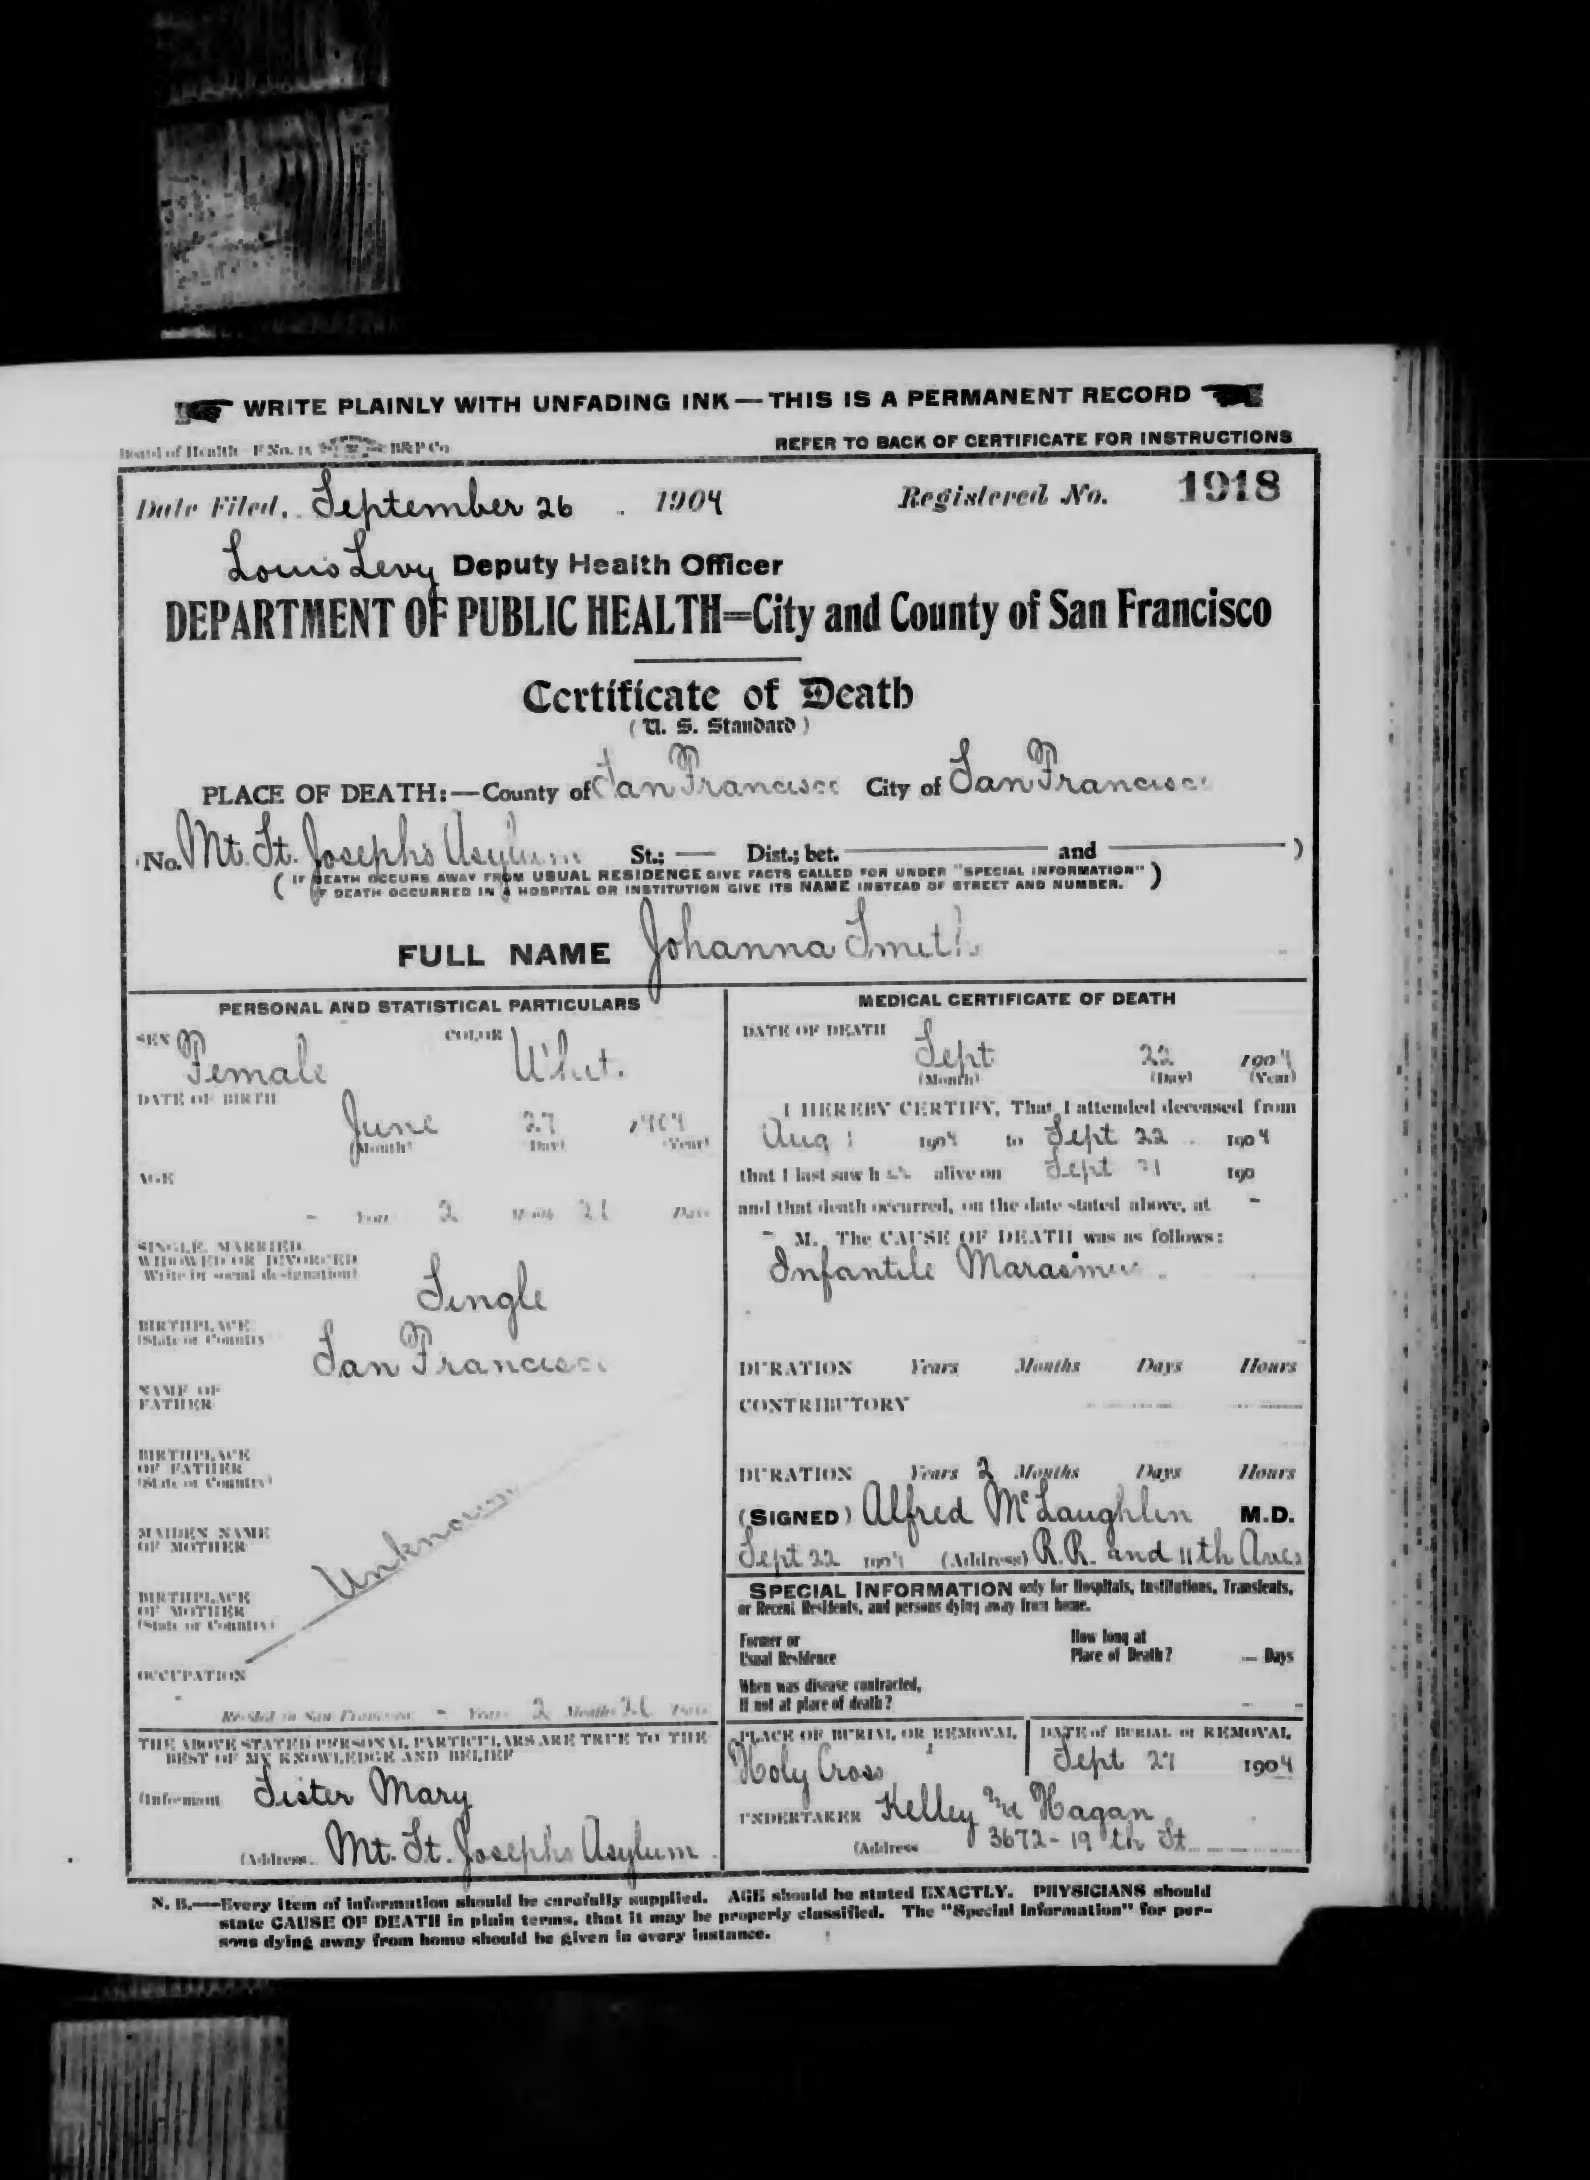 WRITE PLAINLY WITH UNFADING INK—THIS IS A PERMANENT RECORD
Board of Health—F No. 11 B&P Co
REFER TO BACK OF CERTIFICATE FOR INSTRUCTIONS
Date Filed, September 26 . 1904 Registered No. 1918
Louis Levy Deputy Health Officer
DEPARTMENT OF PUBLIC HEALTH=City and County of San Francisco
Certificate of Death
( U. S. Standard )
PLACE OF DEATH:—County of San Francisco City of San Francisco
No. Mt. St. Josephs Asylum St.; — Dist.; bet. — and — )
( IF DEATH OCCURS AWAY FROM USUAL RESIDENCE GIVE FACTS CALLED FOR UNDER "SPECIAL INFORMATION" )
( IF DEATH OCCURRED IN A HOSPITAL OR INSTITUTION GIVE ITS NAME INSTEAD OF STREET AND NUMBER. )
FULL NAME Johanna Smith
PERSONAL AND STATISTICAL PARTICULARS
SEX Female COLOR Whit.
DATE OF BIRTH
June 27 1904
(Month) (Day) (Year)
AGE
- Years 2 Months Days
SINGLE, MARRIED,
WIDOWED OR DIVORCED
(Write in social designation)
Single
BIRTHPLACE
(State or Country)
San Francisco
NAME OF
FATHER
BIRTHPLACE
OF FATHER
(State or Country)
MAIDEN NAME
OF MOTHER
Unknown
BIRTHPLACE
OF MOTHER
(State or Country)
OCCUPATION
Resided in San Francisco - Years 2 Months Days
THE ABOVE STATED PERSONAL PARTICULARS ARE TRUE TO THE
BEST OF MY KNOWLEDGE AND BELIEF
(Informant Sister Mary
(Address. Mt. St. Josephs Asylum
MEDICAL CERTIFICATE OF DEATH
DATE OF DEATH
Sept 22 1904
(Month) (Day) (Year)
I HEREBY CERTIFY, That I attended deceased from
Aug 1 1904 to Sept 22 1904
that I last saw h alive on Sept 21 190
and that death occurred, on the date stated above, at -
- M. The CAUSE OF DEATH was as follows:
Infantile Marasmus
DURATION Years Months Days Hours
CONTRIBUTORY
DURATION Years 2 Months Days Hours
(SIGNED) Alfred McLaughlin M.D.
Sept 22 1904 (Address) R.R. and 11th Aves
SPECIAL INFORMATION only for Hospitals, Institutions, Transients,
or Recent Residents, and persons dying away from home.
Former or
Usual Residence
How long at
Place of Death? — Days
When was disease contracted,
If not at place of death?
PLACE OF BURIAL OR REMOVAL
Holy Cross
DATE of BURIAL or REMOVAL
Sept 27 1904
UNDERTAKER Kelley Hagan
(Address 3672-19th St
N. B.—Every item of information should be carefully supplied. AGE should be stated EXACTLY. PHYSICIANS should
state CAUSE OF DEATH in plain terms, that it may be properly classified. The "Special Information" for per-
sons dying away from home should be given in every instance.